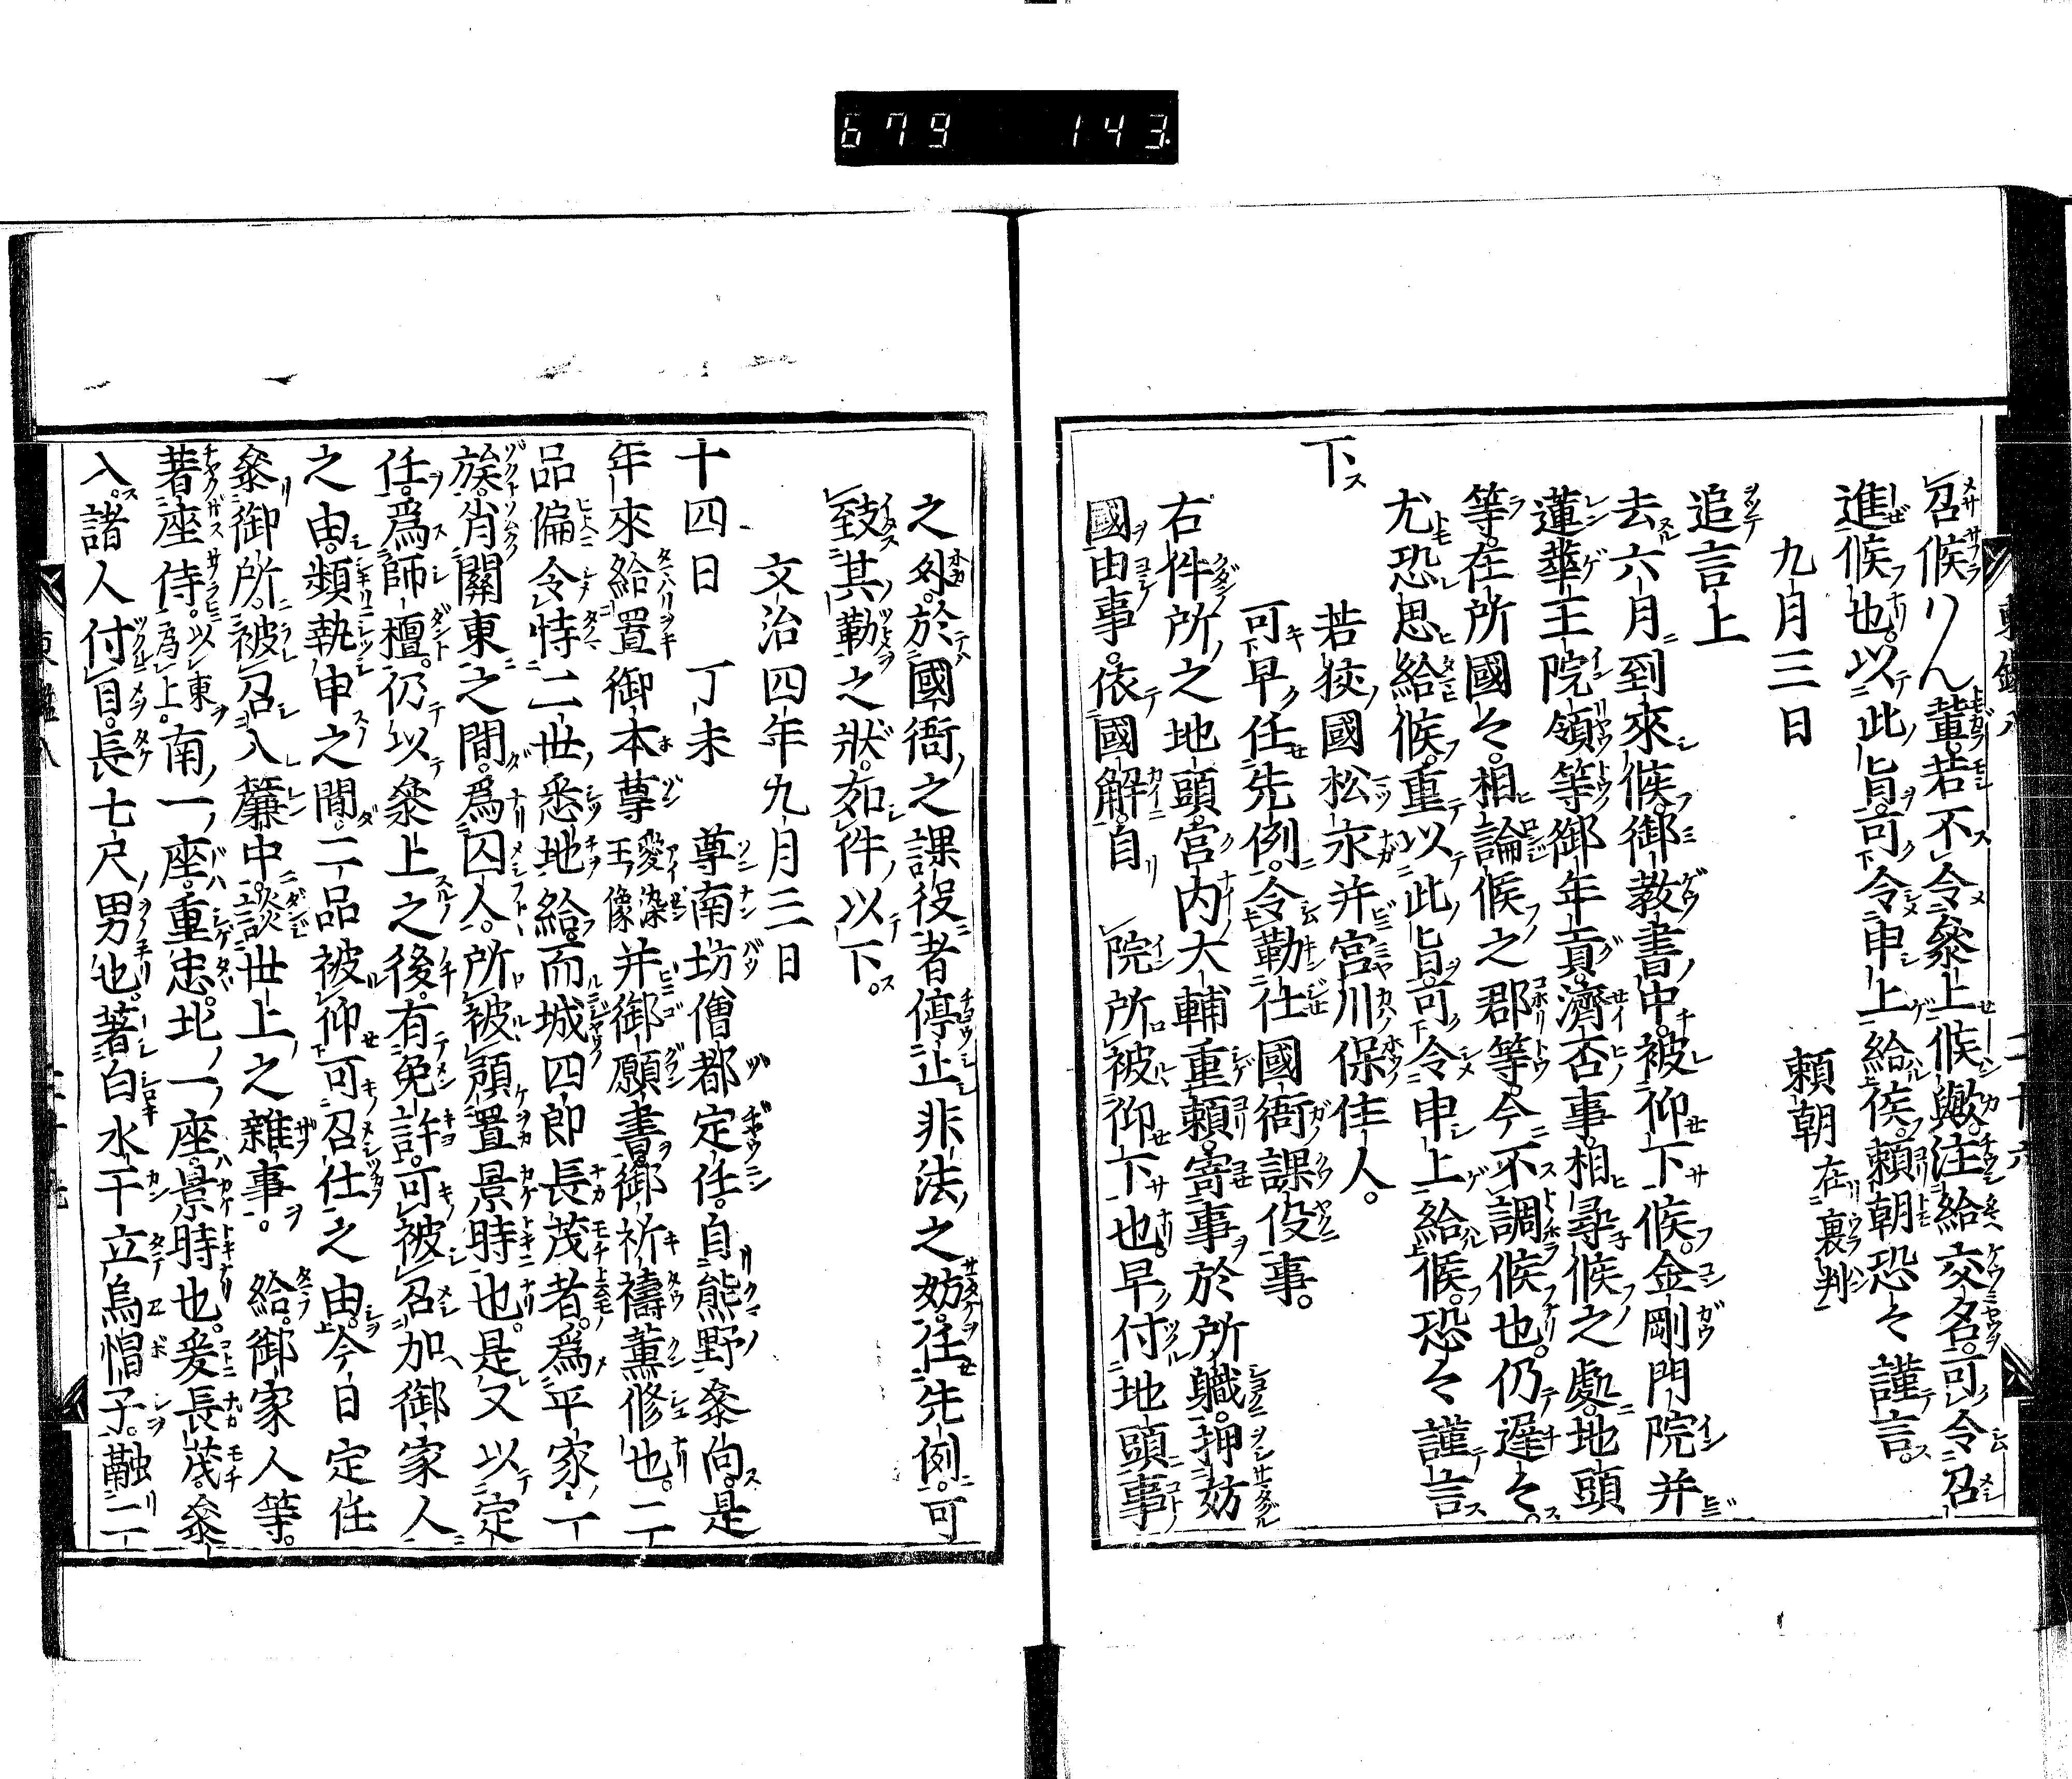 679 143
召候ハん輩。若不令參上候歟。注給交名。可令召
進候也。以此旨。可令申上給候。賴朝恐々謹言。
九月三日
賴朝 在裏判
追言上
去六月到來候。御教書中。被仰下候。金剛門院并
蓮華王院領等。御年貢。濟否事。相尋候之處。地頭
等。在所國々。相論候之郡等。今不調候也。仍遲々。
尤恐思給候。重以此旨。可令申上給候。恐々謹言
下
若狹國松永并宮川保住人。
可早任先例。令勤仕國衙課役事。
右件所之地頭。宮內大輔重賴。寄事於所職。押妨
國由事。依國解。自 院所被仰下也。早付地頭事
之外。於國衙之課役者。停止非法之妨。任先例。可
致其勤之狀。如件。以下。
文治四年九月三日
十四日 丁未 尊南坊僧都定任。自熊野參向。是
年來給置御本尊愛染王像并御願書。御祈禱薰修也。二
品偏令恃二世悉地給。而城四郎長茂者。爲平家一
族。背關東之間。爲囚人。所被預置景時也。是又以定
任。爲師檀。仍以參上之後。有免許。可被召加御家人
之由。頻執申之間。二品被仰可召仕之由。今日定任
參御所。被召入簾中。談世上之雜事。 給。御家人等。
著座侍。以東爲上。南一座。重忠。北一座。景時也。爰長茂。參
入。諸人付目。長七尺男也。著白水干立烏帽子。融二